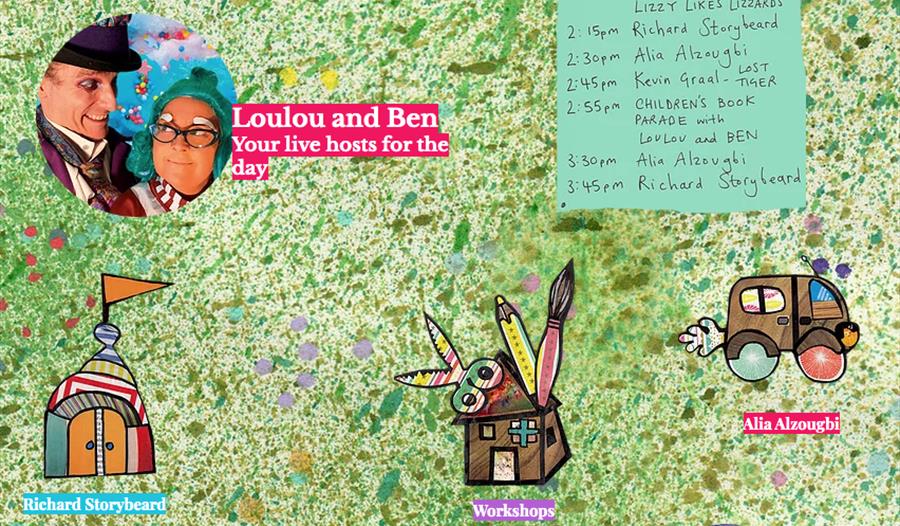 LIZZY LIKES LIZZARDS
2:15pm Richard Storybeard
2:30pm Alia Alzougbi
2:45pm Kevin Graal - LOST TIGER
2:55pm CHILDREN'S BOOK
PARADE with
LOULOU and BEN
3:30pm Alia Alzougbi
3:45pm Richard Storybeard
Loulou and Ben
Your live hosts for the
day
Richard Storybeard
Workshops
Alia Alzougbi